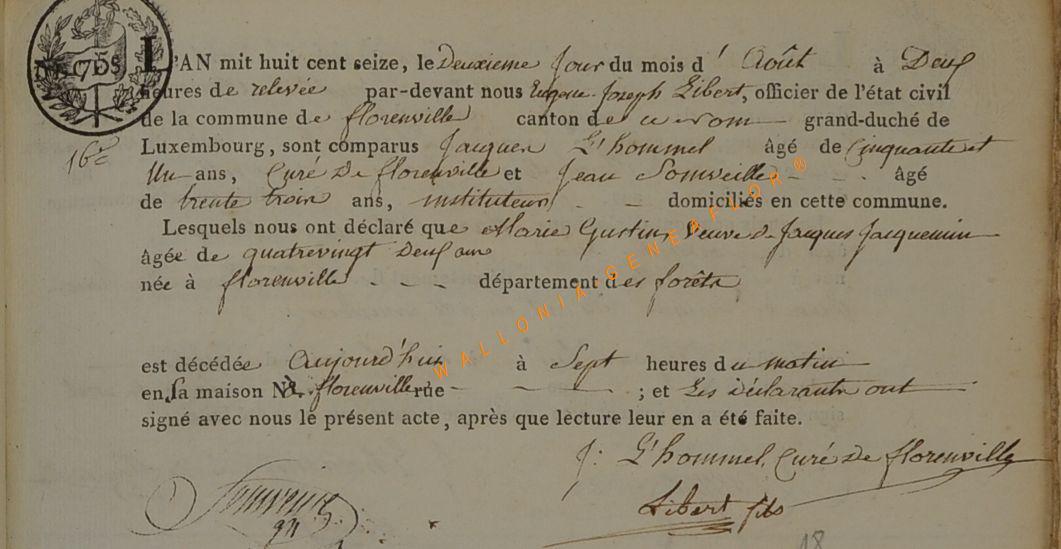 L'AN mit huit cent seize, le Deuxieme Jour du mois d' Août à Deux
heures de relevée par-devant nous Eugene Joseph Libert, officier de l'état civil
de la commune de florenville canton de grand-duché de
16e
Luxembourg, sont comparus Jacques L'hommel âgé de Cinquante et
Un ans, Curé De florenville et Jean Somveille - - - âgé
de trente trois ans, instituteur - - domiciliés en cette commune.
Lesquels nous ont déclaré que Marie Gustin, veuve de Jacques Jacquemin
âgée de quatrevingt Deux ans
née à florenville - - - département des forêts
est décédée Aujourd'hui à Sept heures du matin
en Sa maison N à florenville rue - - - ; et Les déclarants ont
signé avec nous le présent acte, après que lecture leur en a été faite.
J: L'hommel, Curé De florenville
Libert fils
18
WALLONIA-GENEAFLOR®